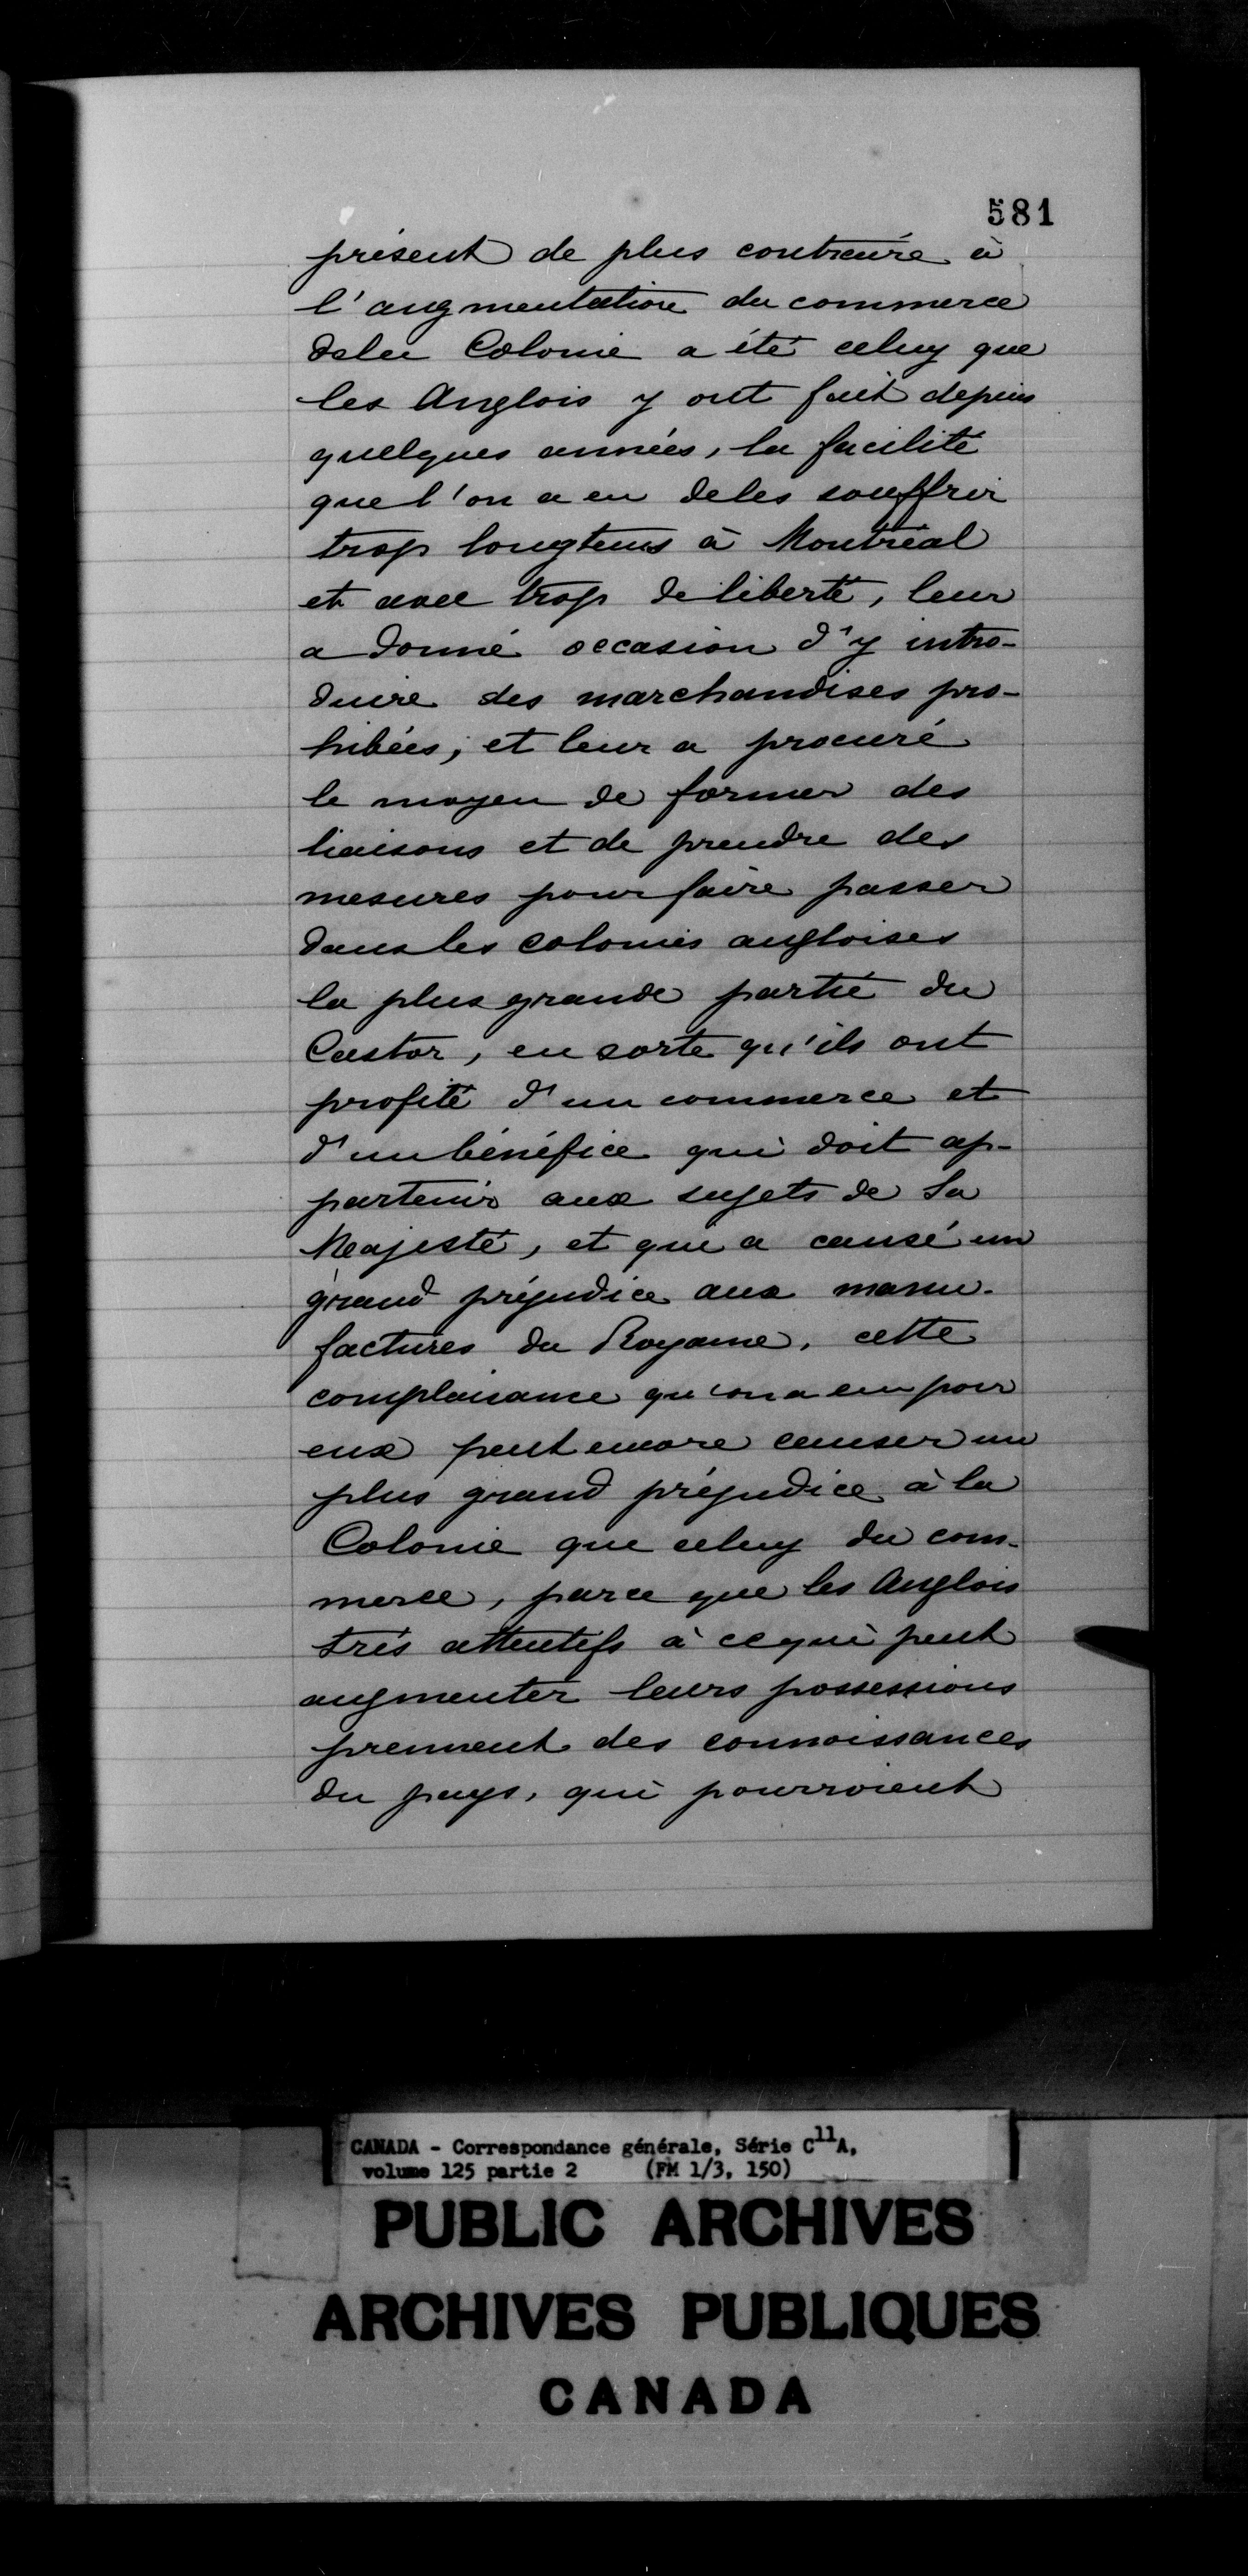 581
présent de plus contraire à
l'augmentation du commerce
dela Colonie a été celuy que
les Anglois y ont fait depuis
quelques années, la facilité
que l'on a eu deles souffrir
trop longtems à Montréal
et avec trop de liberté, leur
a donné occasion d'y intro-
duire des marchandises pro-
hibées; et leur a procuré
le moyen de former des
liaisons et de prendre des
mesures pour faire passer
dans les colonies angloises
la plus grande partie du
Castor, en sorte qu'ils ont
profité d'un commerce et
d'un bénéfice qui doit ap-
partenir aux sujets de Sa
Majesté, et qui a causé un
grand préjudice aux manu-
factures du Royame, cette
complaisance qu'on a eu pour
eux peut encore causer un
plus grand préjudice à la
Colonie que celuy du com-
merce, parce que les Anglois
très attentifs à ce qui peut
augmenter leurs possessions
prennent des connoissances
du pays, qui pourroient
CANADA - Correspondance générale, Série C11A,
volume 125 partie 2 (FM 1/3, 150)
PUBLIC ARCHIVES
ARCHIVES PUBLIQUES
CANADA